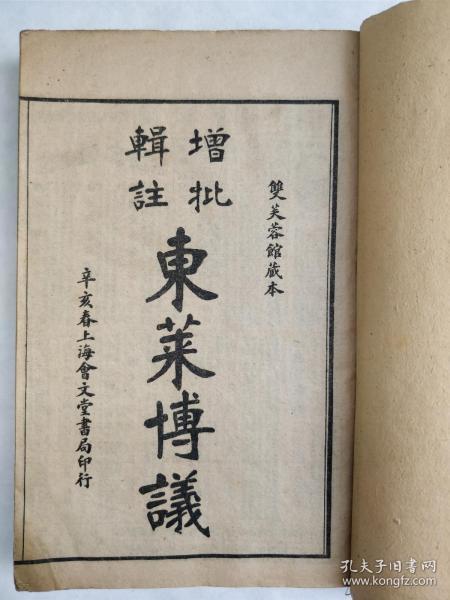 雙芙蓉館藏本
增批
輯註
東萊博議
辛亥春上海會文堂書局印行
孔夫子旧书网
www.kongfz.com